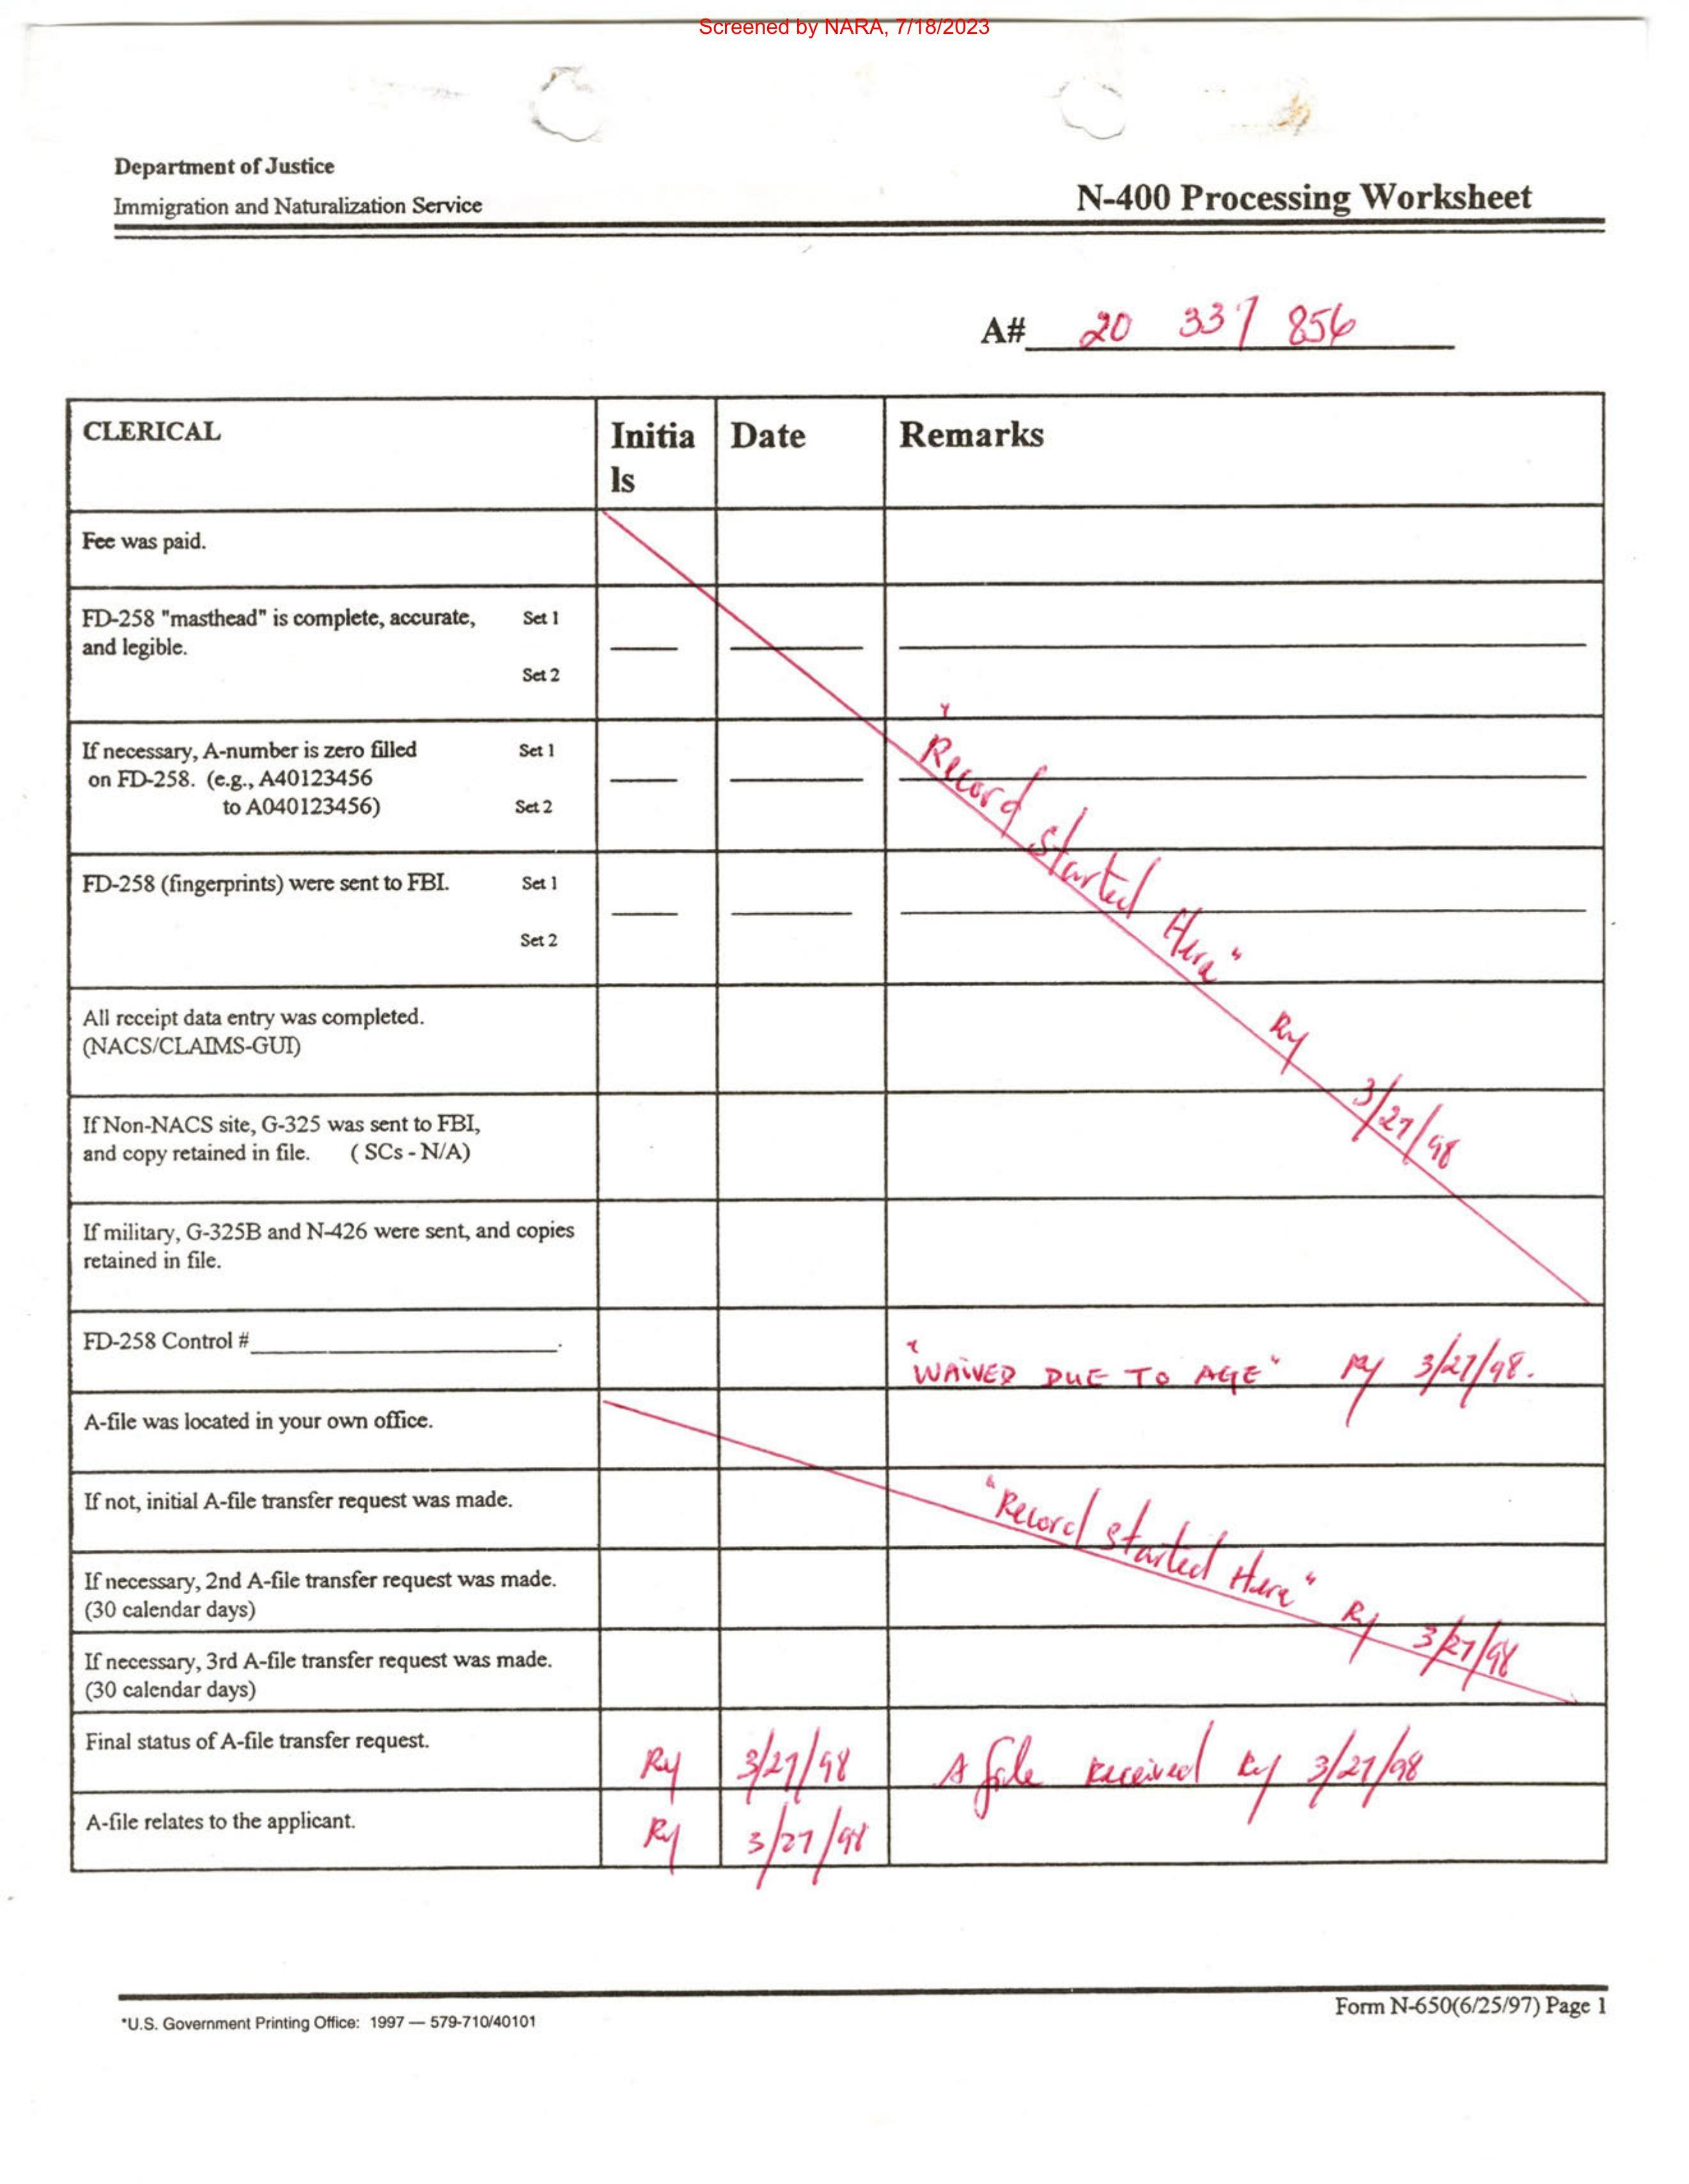 Screened by NARA, 7/18/2023
Department of Justice
Immigration and Naturalization Service
N-400 Processing Worksheet
A# 20 337 856
CLERICAL
Initia
ls
Date
Remarks
Fee was paid.
FD-258 "masthead" is complete, accurate, Set 1
and legible.
Set 2
If necessary, A-number is zero filled Set 1
on FD-258. (e.g., A40123456
to A040123456) Set 2
FD-258 (fingerprints) were sent to FBI. Set 1
Set 2
"Record started Here" Ry 3/27/98
All receipt data entry was completed.
(NACS/CLAIMS-GUI)
If Non-NACS site, G-325 was sent to FBI,
and copy retained in file. ( SCs - N/A)
If military, G-325B and N-426 were sent, and copies
retained in file.
FD-258 Control # .
"WAIVED DUE TO AGE" Ry 3/27/98.
A-file was located in your own office.
If not, initial A-file transfer request was made.
"Record started Here" Ry 3/27/98
If necessary, 2nd A-file transfer request was made.
(30 calendar days)
If necessary, 3rd A-file transfer request was made.
(30 calendar days)
Final status of A-file transfer request. Ry 3/27/98 A file received Ry 3/27/98
A-file relates to the applicant. Ry 3/27/98
Form N-650(6/25/97) Page 1
*U.S. Government Printing Office: 1997 — 579-710/40101